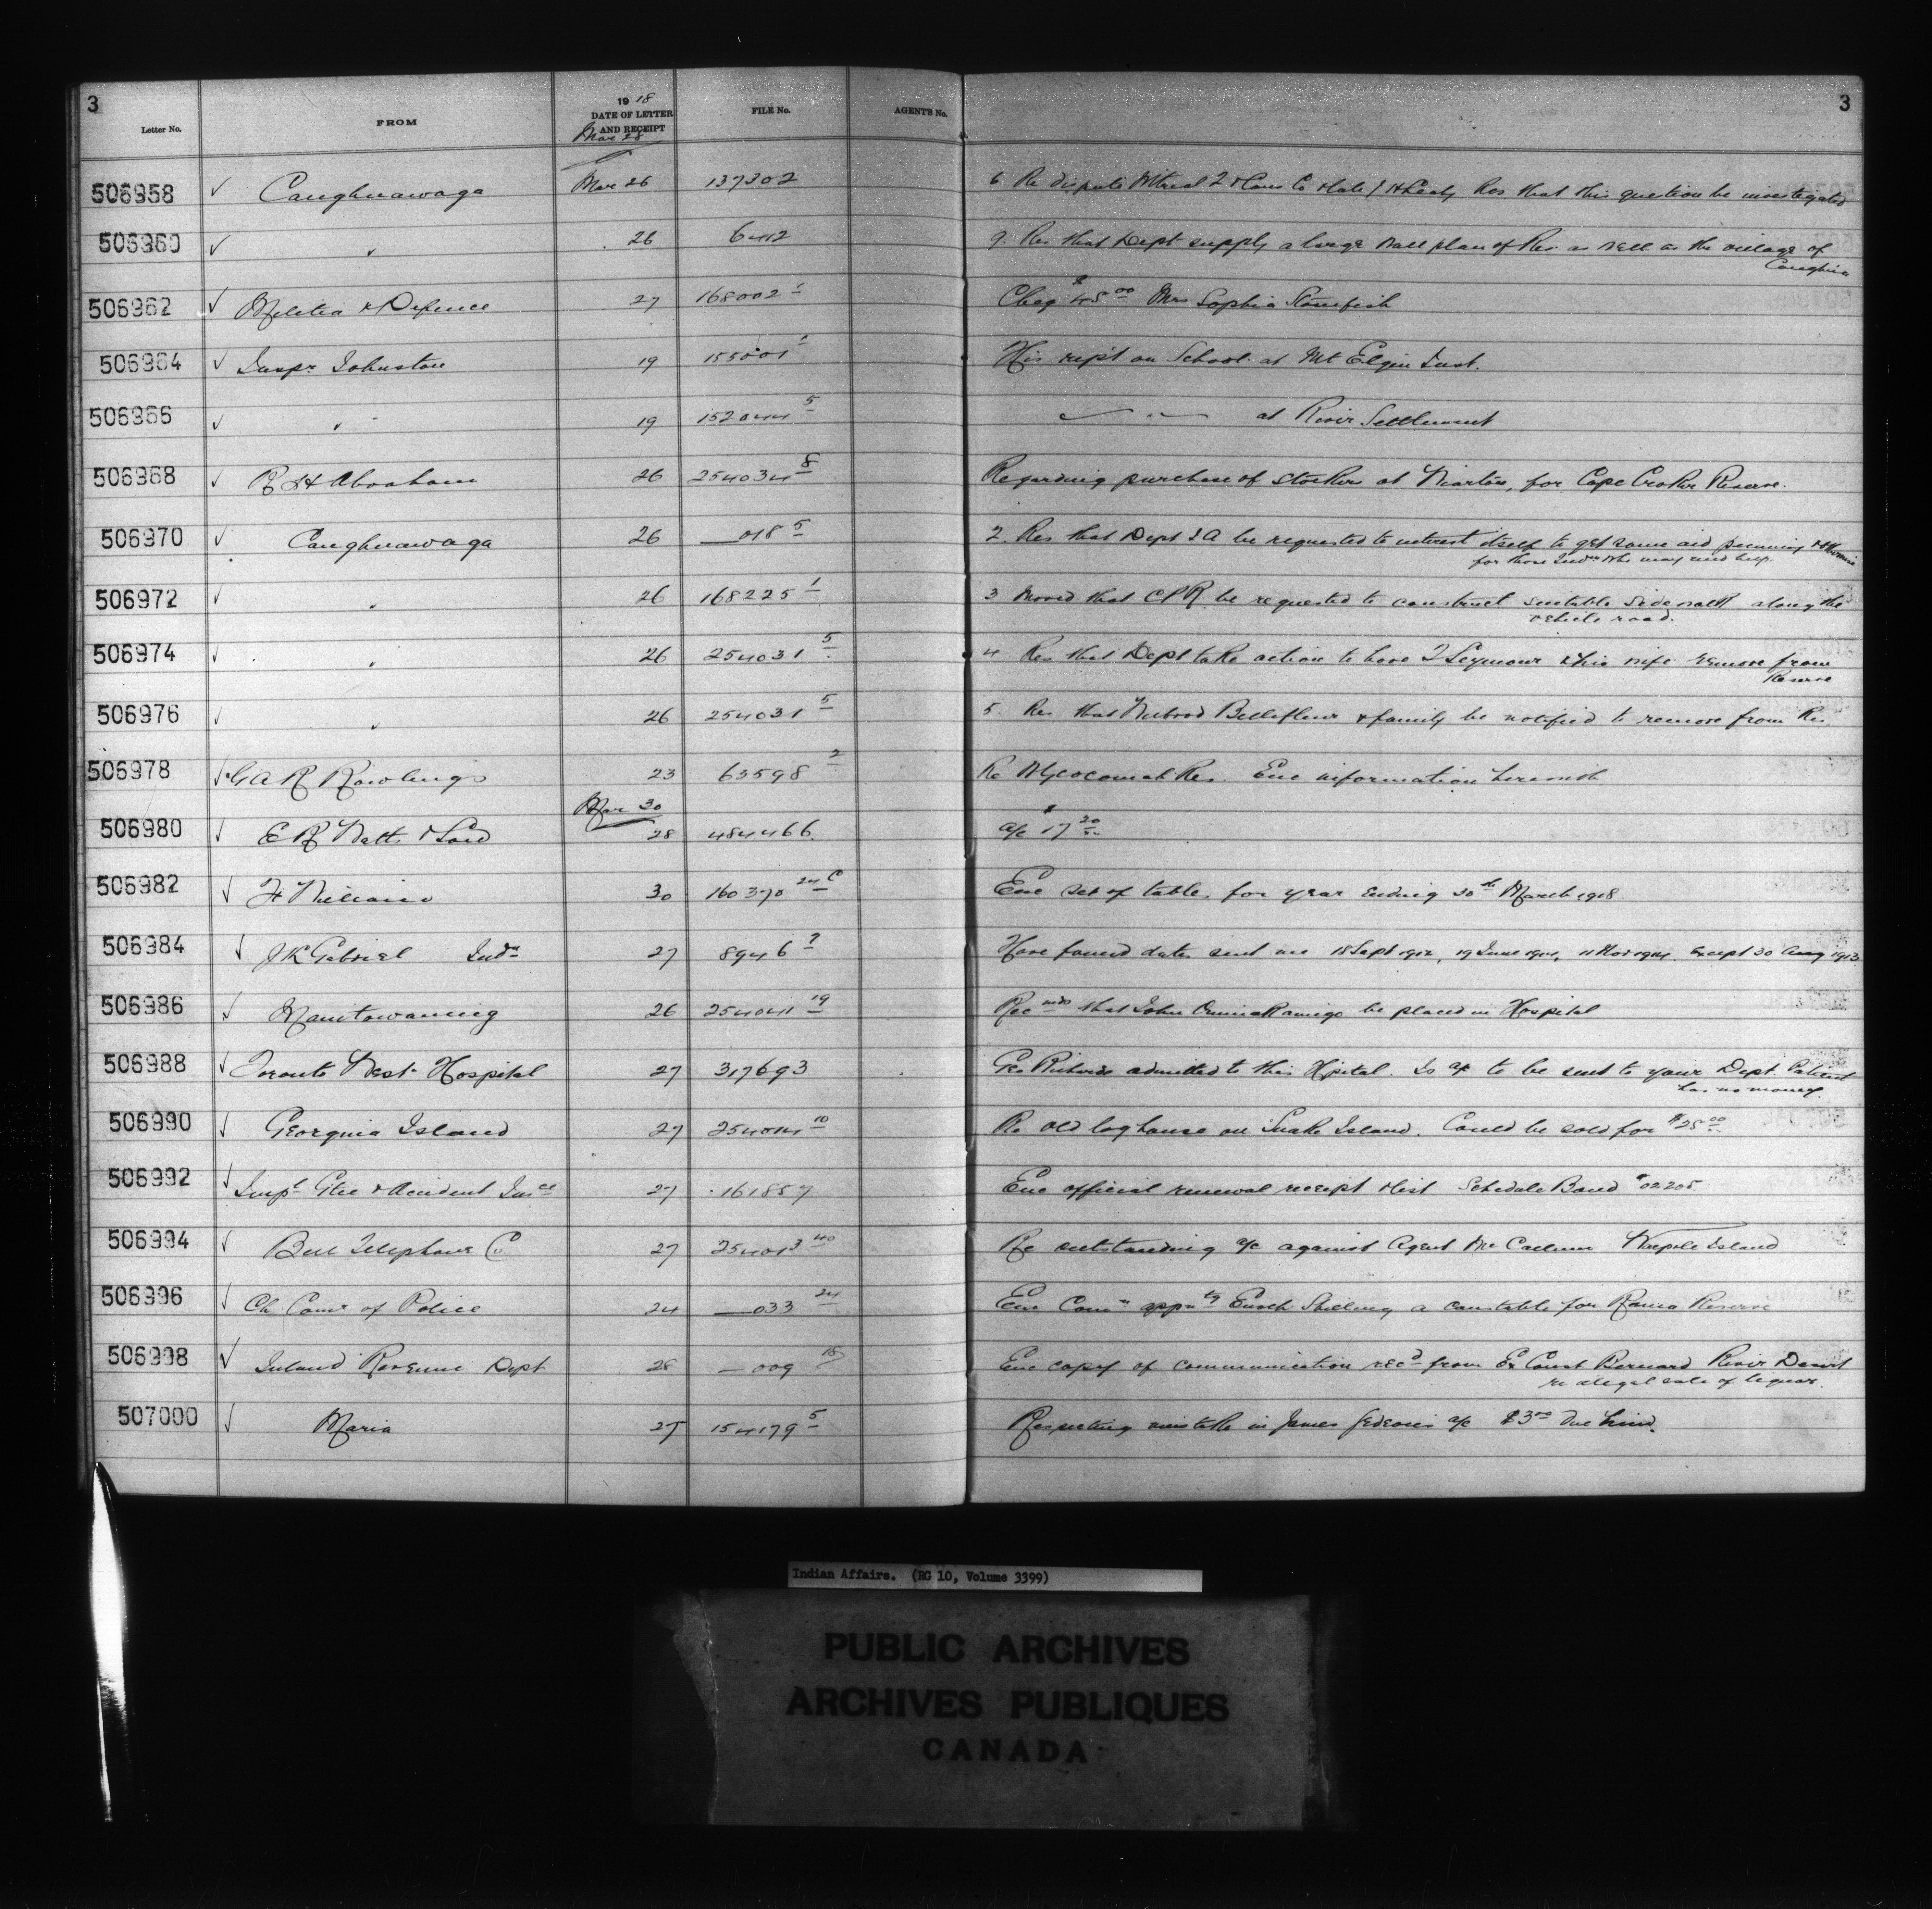 3
3
Letter No. FROM 1918 DATE OF LETTER AND RECEIPT FILE No. AGENT'S No.
Mar 28
506958 ✓ Caughnawaga Mar 26 137302 6 Re dispute Mtreal & Co & late Res that this question be investigated
506960 ✓ " 26 6412 9. Res that Dept supply a large wall plan of Res. as well as the village of
Caughna
506962 ✓ Militia & Defence 27 168002 1 Cheq $45 00 Mrs Sophia Stonefish
506964 ✓ Inspr Johnston 19 155001 1 His rept on School at Mt Elgin Inst.
506966 ✓ " 19 152044 5 " " at River Settlement
506968 ✓ R H Abraham 26 254034 8 Regarding purchase of Stockers at Wiarton, for Cape Croker Reserve.
506970 ✓ Caughnawaga 26 —018 5 2. Res that Dept I A be requested to interest itself to get some aid
for those Indns who may need help.
506972 ✓ " 26 168225 1 3 Moved that CPR be requested to construct suitable sidewalk along the
vehicle road.
506974 ✓ " 26 254031 5 4. Res that Dept take action to have J Seymour & his wife remove from
Reserve
506976 ✓ " 26 254031 5 5. Res that Bellefleur & family be notified to remove from Res
506978 ✓ G A R Rowlings 23 63598 2 Re Whycocomah Res. Enc information herewith
Mar 30
506980 ✓ E R Watts & Son 28 484466 a/c $17 20
506982 ✓ 30 160370 24 C Enc set of tables for year ending 30th March 1918.
506984 ✓ J K Gabriel Indn 27 8946 Have found dates sent me 18 Sept 1912, 19 June 1914, 11 Nov 1914 except 30 Aug 1913
506986 ✓ Manitowaning 26 254041 19 Recmds that John be placed in Hospital
506988 ✓ Toronto West. Hospital 27 317693 Geo Richards admitted to this Hpital. Is a/c to be sent to your Dept. Patient
has no money.
506990 ✓ Georgina Island 27 254014 10 Re old log house on Snake Island. Could be sold for $25 00
506992 ✓ Impl Gtee & Accident Insce 27 161857 Enc official renewal receipt & list Schedule Bond #02205
506994 ✓ Bell Telephone Co 27 254013 40 Re outstanding a/c against Agent McCallum Walpole Island
506996 ✓ Ch Comr of Police 24 —033 24 Enc Comn appntg Enoch Shilling a constable for Rama Reserve
506998 ✓ Inland Revenue Dept 28 —009 18 Enc copy of communication recd from Ex Const Bernard River Desert
re illegal sale of liquor.
507000 ✓ Maria 27 154179 5 Respecting mistake in James a/c $3 00 due him.
Indian Affairs. (RG 10, Volume 3399)
PUBLIC ARCHIVES
ARCHIVES PUBLIQUES
CANADA